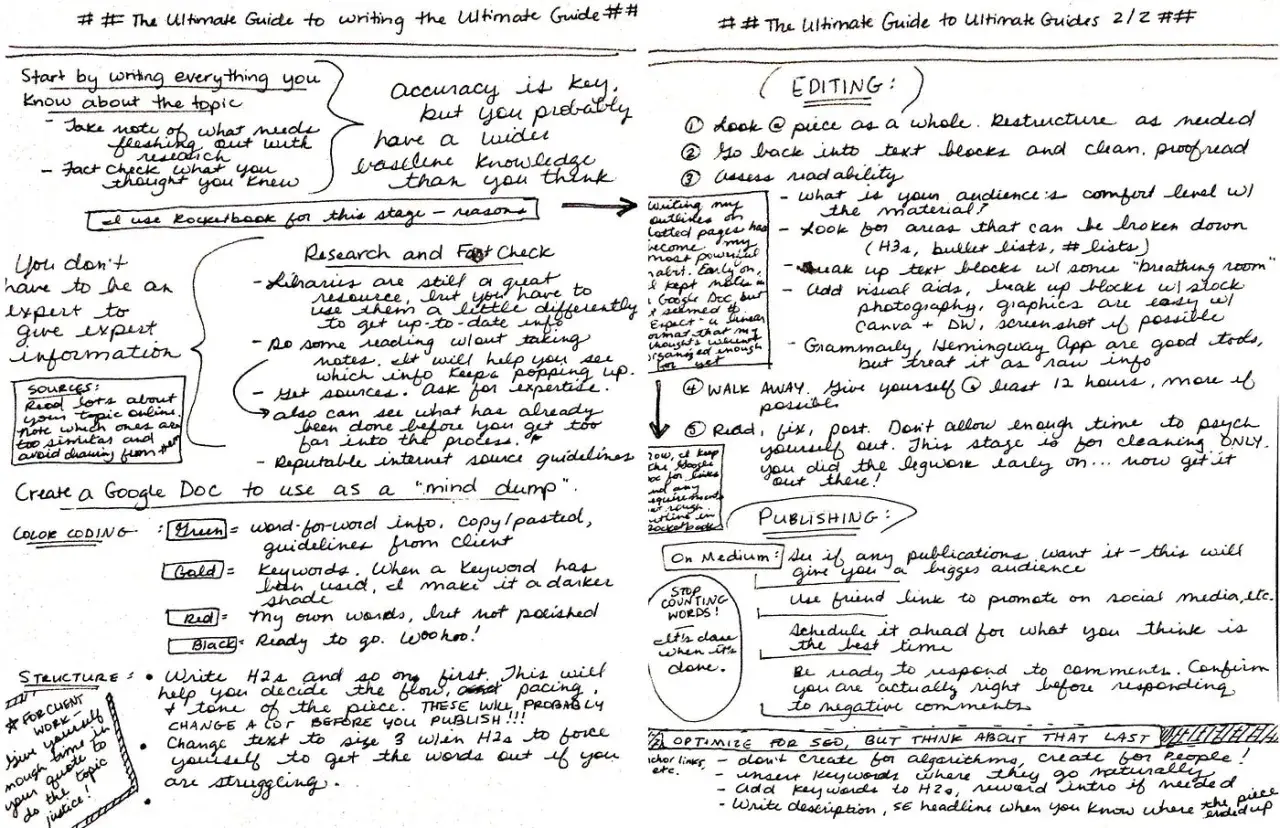 ## The Ultimate Guide to Writing the Ultimate Guide ##
Start by writing everything you
know about the topic
- Take note of what needs
fleshing out with
research
- Fact check what you
thought you knew
Accuracy is key,
but you probably
have a wider
baseline knowledge
than you think
I use Rocketbook for this stage - reasons
You don't
have to be an
expert to
give expert
information
SOURCES:
Read lots about
your topic online.
Note which ones are
too similar and
avoid drawing from them
Research and Fact Check
- Libraries are still a great
resource, but you have to
use them a little differently
to get up-to-date info
- Do some reading w/out taking
notes. It will help you see
which info keeps popping up.
- Get sources. Ask for expertise.
also can see what has already
been done before you get too
far into the process.
- Reputable internet source guidelines
Create a Google Doc to use as a "mind dump".
COLOR CODING :
Green = word-for-word info, copy/pasted,
guidelines from client
Gold = Keywords. When a keyword has
been used, I make it a darker
shade
Red = My own words, but not polished
Black = Ready to go. Woohoo!
STRUCTURE :
• Write H2s and so on first. This will
help you decide the flow, pacing,
+ tone of the piece. THESE WILL PROBABLY
CHANGE A LOT BEFORE YOU PUBLISH!!!
• Change text to size 3 w/in H2s to force
yourself to get the words out if you
are struggling.
•
* FOR CLIENT
WORK -
Give yourself
enough time in
your quote to
do the topic
justice!
## The Ultimate Guide to Ultimate Guides 2/2 ##
(EDITING:)
① Look @ piece as a whole. Restructure as needed
② Go back into text blocks and clean, proofread
③ Assess readability
- What is your audience's comfort level w/
the material?
- Look for areas that can be broken down
(H3s, bullet lists, # lists)
- Break up text blocks w/ some "breathing room"
- Add visual aids, break up blocks w/ stock
photography, graphics are easy w/
Canva + DW, screenshot if possible
- Grammarly, Hemingway App are good tools,
but treat it as raw info
④ WALK AWAY. Give yourself @ least 12 hours, more if
possible
⑤ Read, fix, post. Don't allow enough time to psych
yourself out. This stage is for cleaning ONLY.
You did the legwork early on... now get it
out there!
Writing my
outlines on
dotted pages has
become my
most powerful
habit. Early on,
I kept notes in
a Google Doc, but
it seemed to
expect a linear
format that my
thoughts weren't
organized enough
for yet
Now, I keep
the Google
Doc for links
and any
requirements
but rough
outline in
Rocketbook
PUBLISHING:
On Medium: See if any publications want it - this will
give you a bigger audience
Use friend link to promote on social media, etc.
Schedule it ahead for what you think is
the best time
Be ready to respond to comments. Confirm
you are actually right before responding
to negative comments
STOP
COUNTING
WORDS!
It's done
when it's
done.
OPTIMIZE FOR SEO, BUT THINK ABOUT THAT LAST
links,
etc.
- don't create for algorithms, create for people!
- insert keywords where they go naturally
- Add keywords to H2s, reword intro if needed
- Write description, SE headline when you know where the piece
ended up